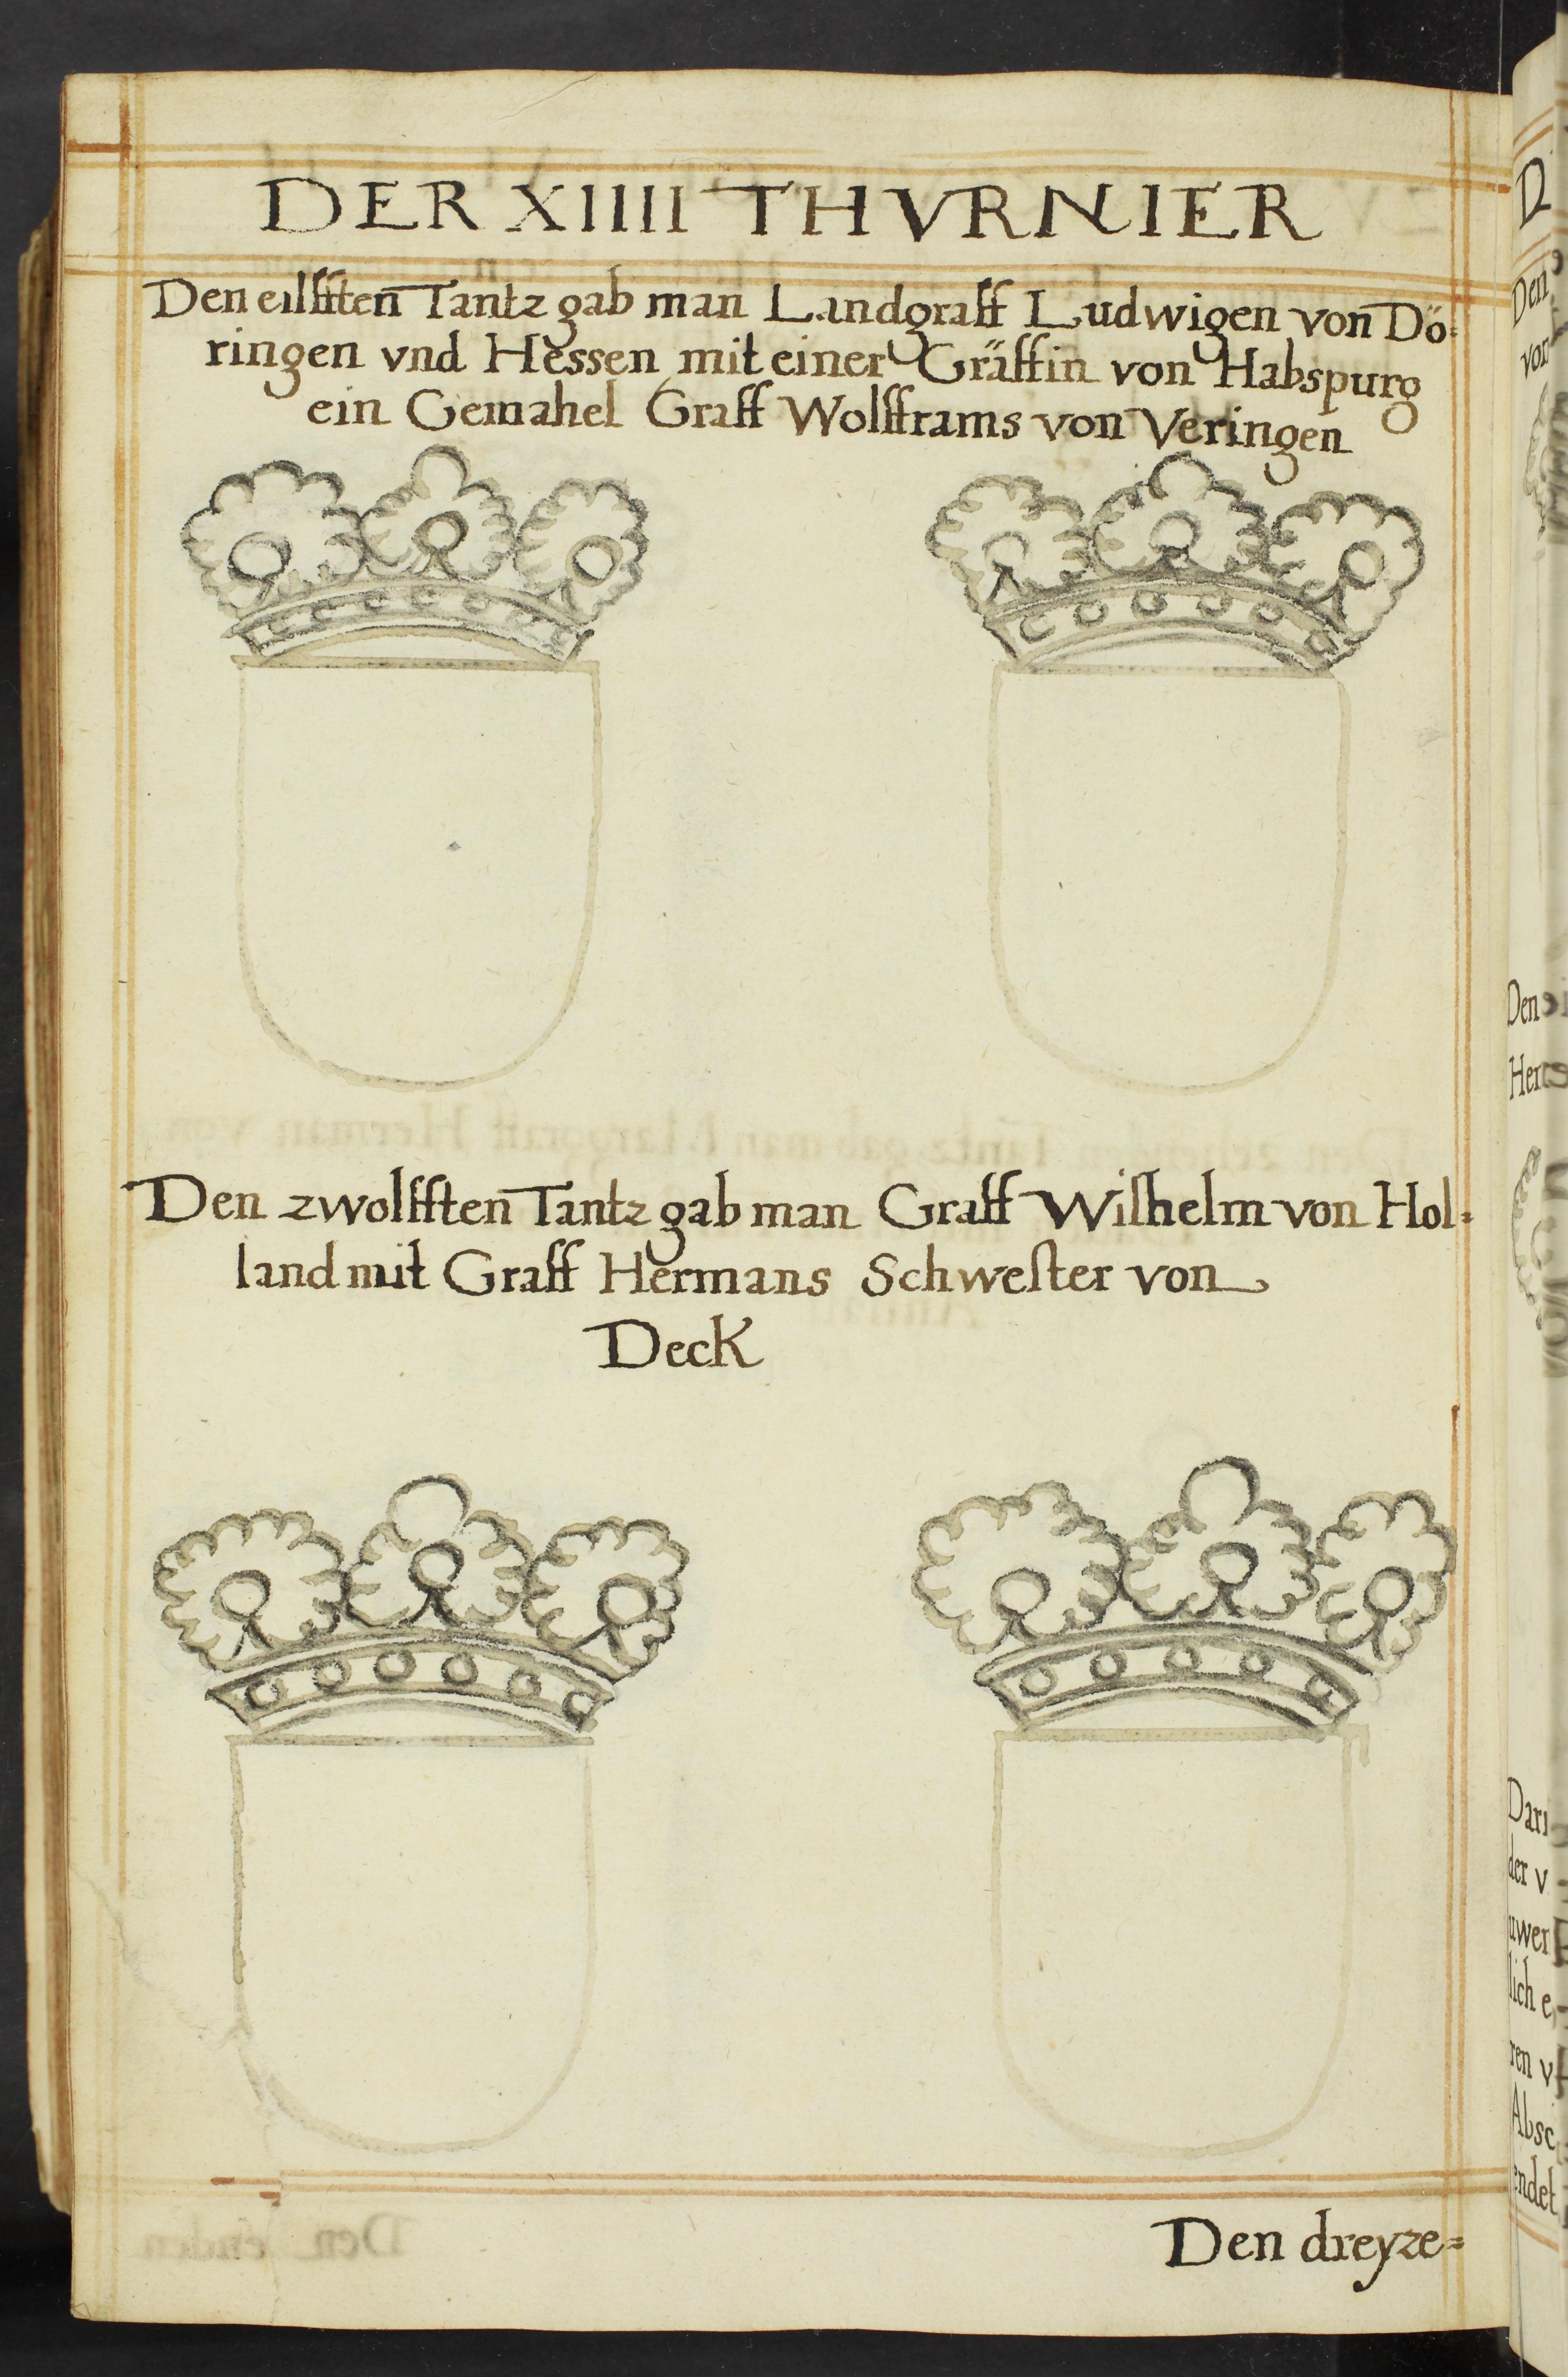 DER XIIII THVRNIER
Den eilfften Tantz gab man Landgraff Ludwigen von Dö-
ringen vnd Hessen mit einer Gräffin von Habspurg
ein Gemahel Graff Wolfframs von Veringen
Den zwolfften Tantz gab man Graff Wilhelm von Hol-
land mit Graff Hermans Schwester von
Deck
Den dreyze=
Den
von
Den
Her
der v
lich e
ren v
Absc
endet